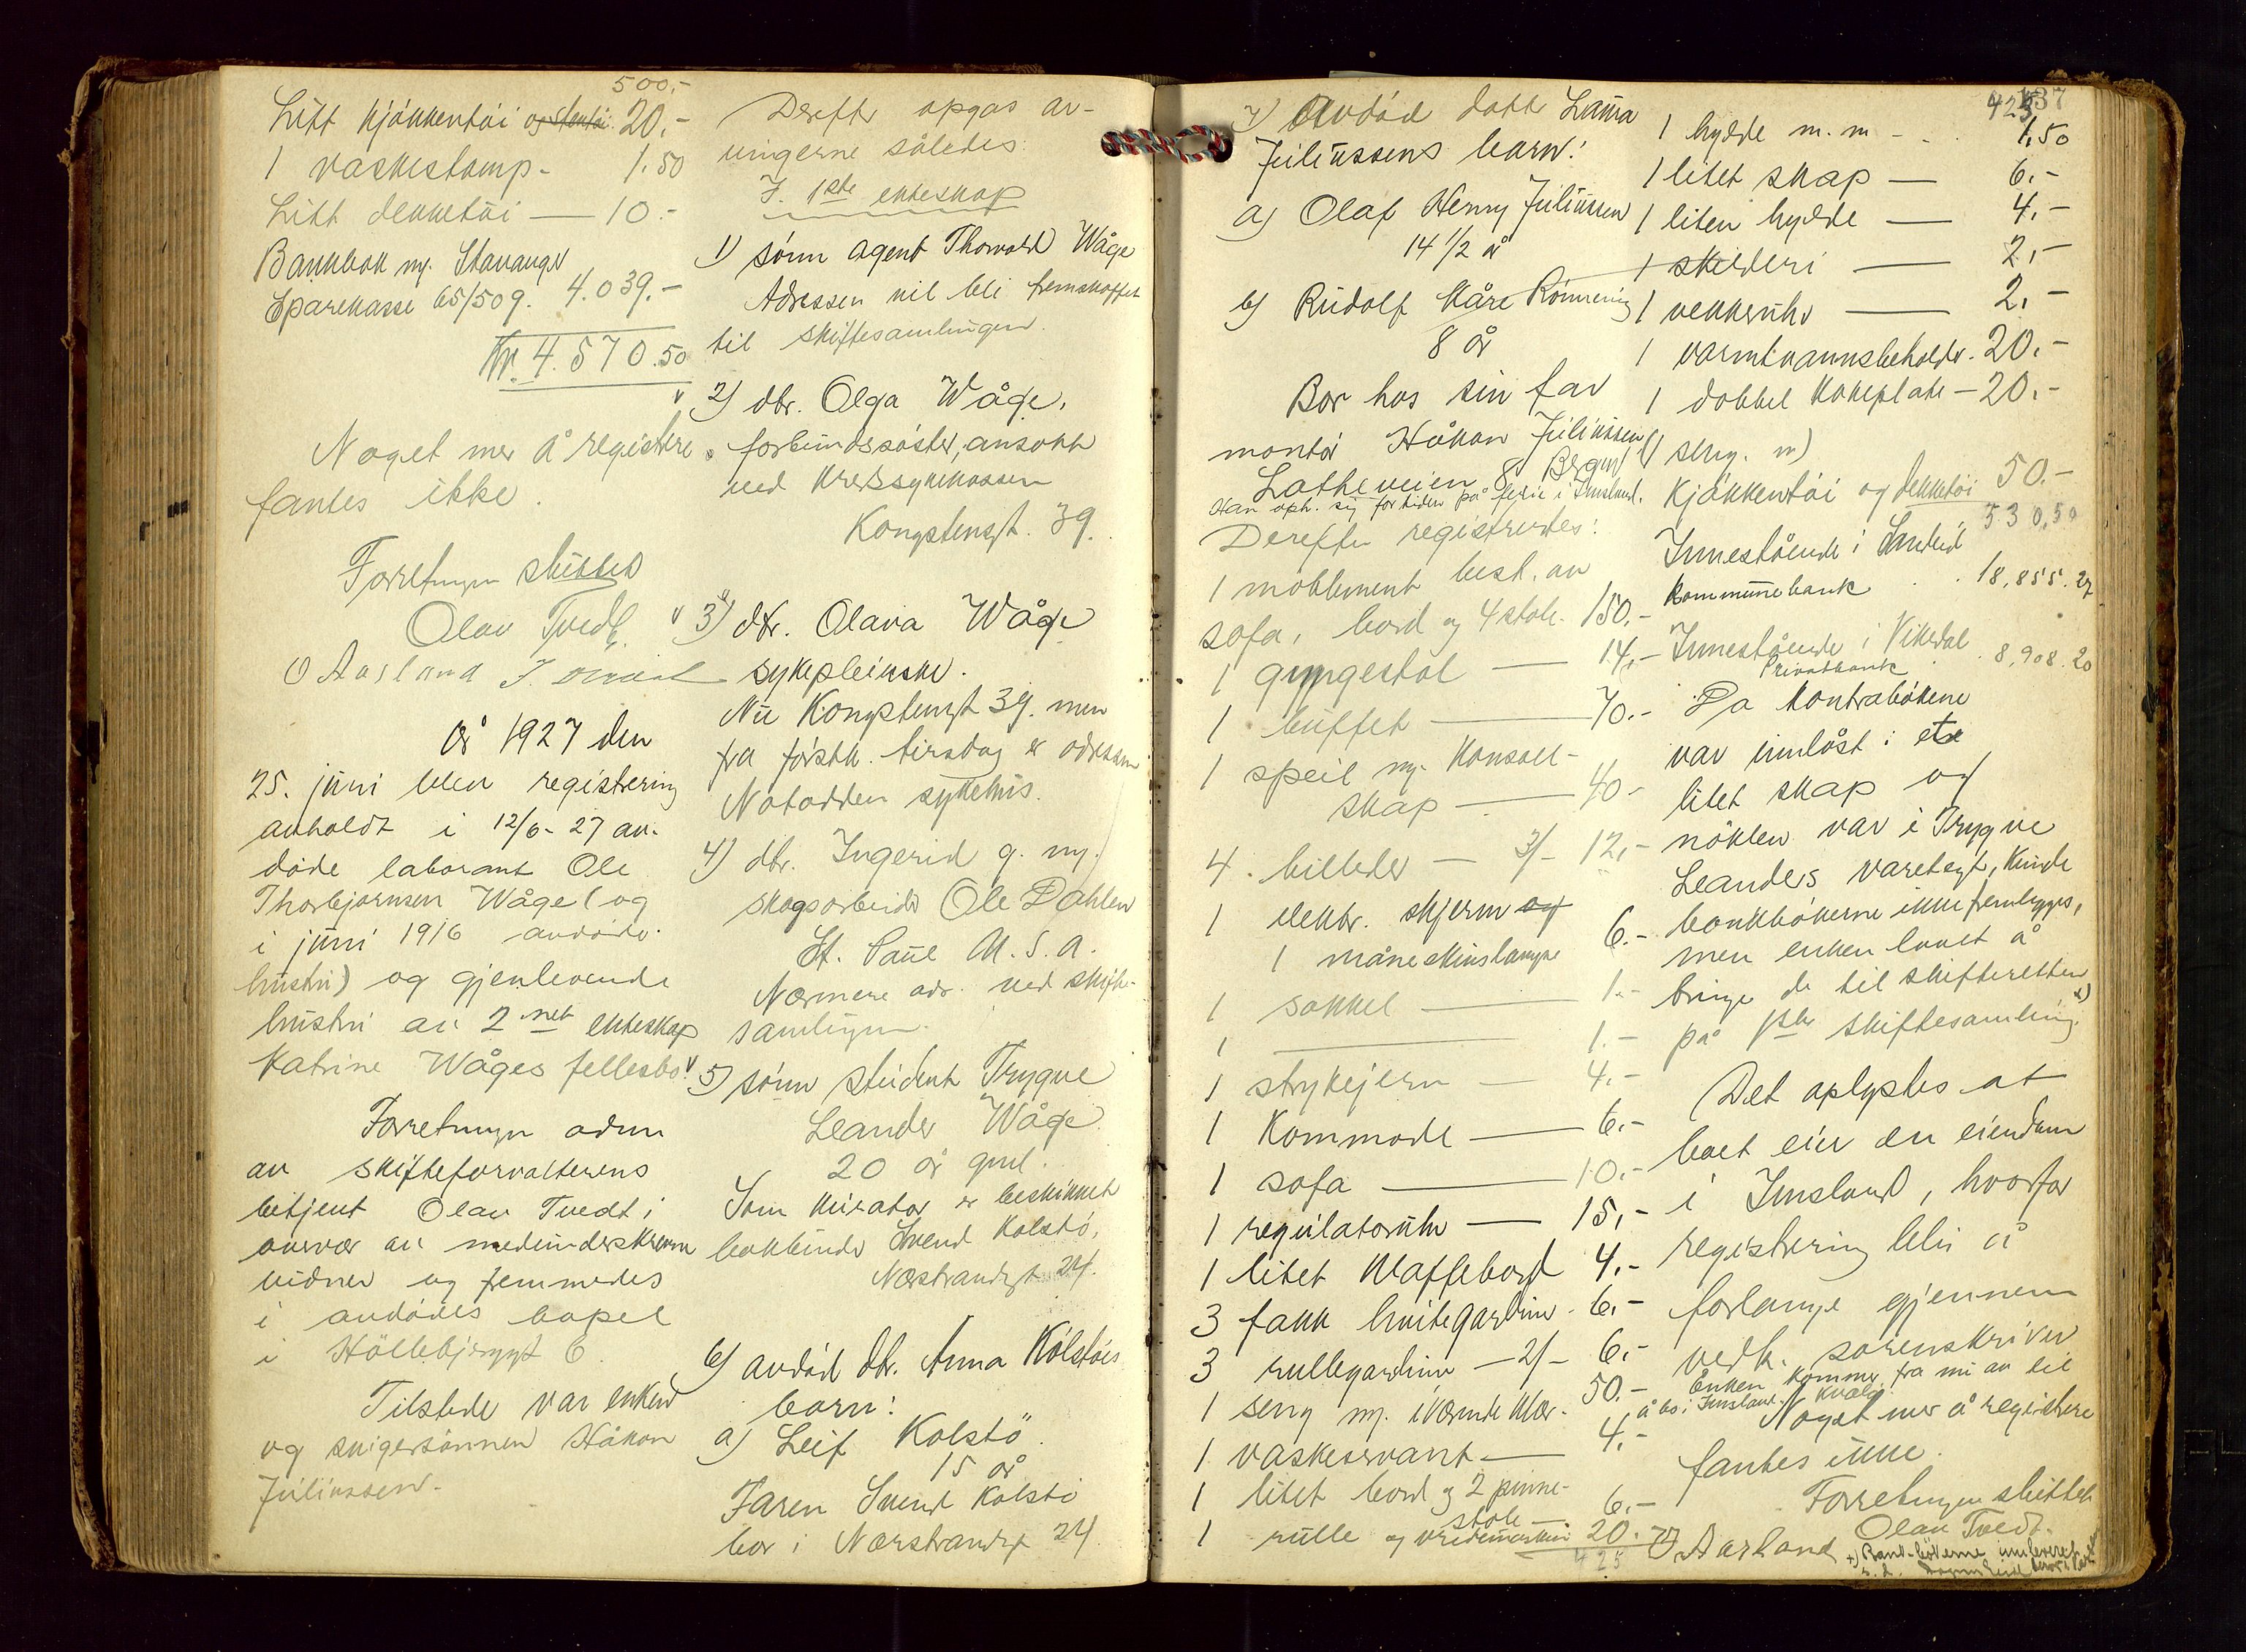 500.-
Litt kjökkentöi og stentöi 20.-
1 vaskestamp - 1.50
Litt dekketöi — 10.-
Bankbok m/. Stavanger
Sparekasse 65/509. 4.039.-
Kr. 4.570.50
Noget mer å registere
fantes ikke.
Forretningen sluttes
Olav Tvedt.
O Aasland
År 1927 den
25. juni blev registrering
avholdt i 12/6-27 av-
döde laborant Ole
Thorbjørnsen Våge (og
i juni 1916 avdöde
hustru) og gjenlevende
hustru av 2net ekteskap
Katrine Våges fellesbo.
Forretningen adm
av skifteforvalterens
betjent Olav Tvedt i
overvær av medunderskrevne
vidner og fremmedes
i avdödes bopel
i Höllebjerggt 6.
Tilstede var enken
og svigersönnen Håkon
Juliussen.
Derefter opgas ar-
vingerne således:
I. 1ste ekteskap
1) sönn agent Thorvald Wåge
Adressen vil bli fremskaffet
til skiftesamlingen.
v 2) dtr. Olga Wåge,
forbundssöster, ansatt
ved Kretssykekassen
Kongstensgt. 39.
v 3) dtr. Olava Wåge
sykepleierske.
Nu Kongstensgt 39. men
fra förstk. tirsdag er adressen
Notodden sykehus.
4) dtr. Ingerid g. m/.
skogsarbeider Ole Dahlen
St. Paul U.S.A.
Nærmere adr. ved skifte-
samlingen.
v 5) sönn student Trygve
Leander Wåge
20 år gml.
Som kurator er beskikket
bokbinder Svend Kolstö,
Nærstrandsgt 24.
6) avdöd dtr. Anna Kolstöes
barn:
a) Leif Kolstö.
15 år
Faren Svend Kolstö
bor i Nærstrandsgt 24
7) Avdöd datter Laura
Juliussens barn:
a) Olaf Henry Juliussen
14 1/2 år
b) Rudolf Kåre Rönnevig
8 år
Bor hos sin far
montör Håkon Juliussen
Latheveien 8 Bergen
Han oph. sig for tiden på ferie i Imsland.
Derefter registrertes:
1 möblement best. av
sofa, bord og 4 stole. 150.-
1 gyngestol — 14.-
1 buffet — 70.-
1 speil m/. Konsoll-
skap — 40.-
4 billeder — 3/- 12.-
1 elektr. skjerm og
1 måneskinslampe 6.-
1 sokkel — 1.-
1 — 1.-
1 strykejern — 4.-
1 Kommode — 6.-
1 sofa — 10.-
1 regulatoruhr — 15.-
1 litet Kaffebord 4.-
3 fakk hvitegardiner - 6.-
3 rullegardiner — 2/- 6.-
1 seng m/. iværende klær. 50.-
1 vaskeservant — 4.-
1 litet bord og 2 pinne-
stole — 6.-
1 rulle og vridemaskin 20.-
425
437
425
1 hylde m.m - - 1.50
1 litet skap — 6.-
1 liten hylde — 4.-
1 skilderi — 2.-
1 vekkeruhr — 2.-
1 varmtvannsbeholder. 20.-
1 dobbel kokeplate — 20.-
(1 seng. m)
Kjökkentöi og dekketöi 50.-
530.50
Innestående i Imsland
Kommunebank . . 18,855.27
Innestående i Vikedal
Privatbank . 8,908.20
Da kontrabökene
var innlåst i ete
litet skap og
nöklen var i Trygve
Leanders varetegt, kunde
bankbökerne ikke fremlegges,
men enken lovet å
bringe de til skifteretten
på 1ste skiftesamling. x)
Det oplystes at
boet eier en eiendom
i Imsland, hvorfor
registrering blir å
forlange gjennem
vedk. sorenskriver
Enken kommer fra nu av til
å bo i Imsland.
Noget mer å registrere
fantes ikke.
Forretningen sluttet
Olav Tvedt.
O Aasland
x) Bank-bökerne innlevert